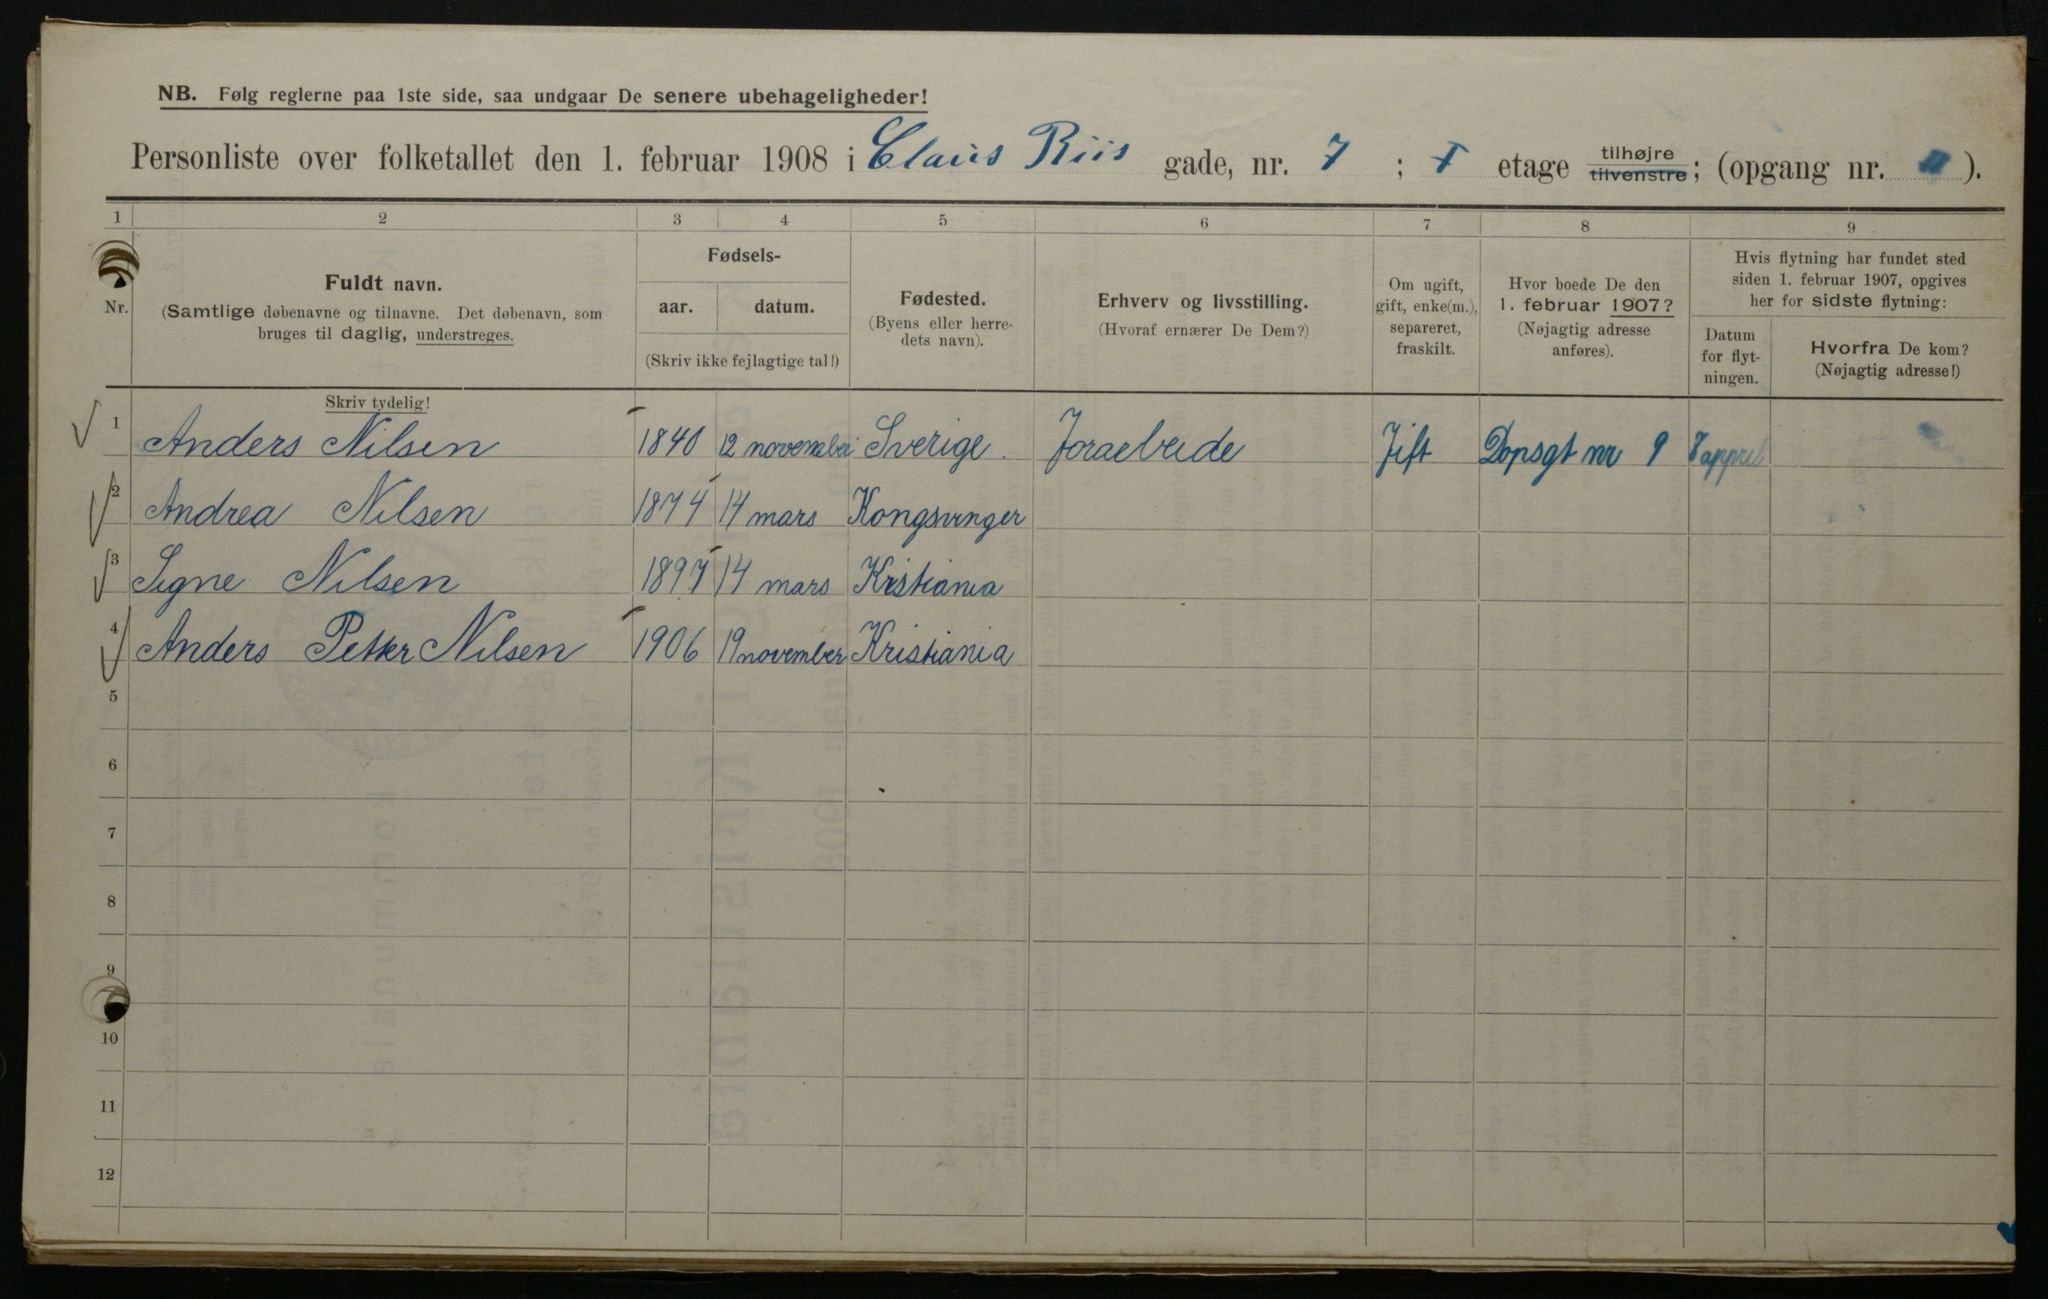 NB. Følg reglerne paa 1ste side, saa undgaar De senere ubehageligheder!
Personliste over folketallet den 1. februar 1908 i Claus Riis gade, nr. 7 ; I etage tilhøjre tilvenstre; (opgang nr. ).
1 2 3 4 5 6 7 8 9
Nr.
Fuldt navn.
(Samtlige døbenavne og tilnavne. Det døbenavn, som
bruges til daglig, understreges.
Skriv tydelig!
Fødsels-
aar. datum.
(Skriv ikke fejlagtige tal!)
Fødested.
(Byens eller herre-
dets navn).
Erhverv og livsstilling.
(Hvoraf ernærer De Dem?)
Om ugift,
gift, enke(m.),
separeret,
fraskilt.
Hvor boede De den
1. februar 1907?
(Nøjagtig adresse
anføres).
Hvis flytning har fundet sted
siden 1. februar 1907, opgives
her for sidste flytning:
Datum
for flyt-
ningen.
Hvorfra De kom?
(Nøjagtig adresse!)
1 Anders Nilsen 1840 12 november Sverige. Joraebeide Jift Dopsgt nr 9 7 appril
2 Andrea Nilsen 1874 14 mars Kongsvinger
3 Signe Nilsen 1897 14 mars Kristiania
4 Anders Petter Nilsen 1906 19 november Kristiania
5
6
7
8
9
10
11
12